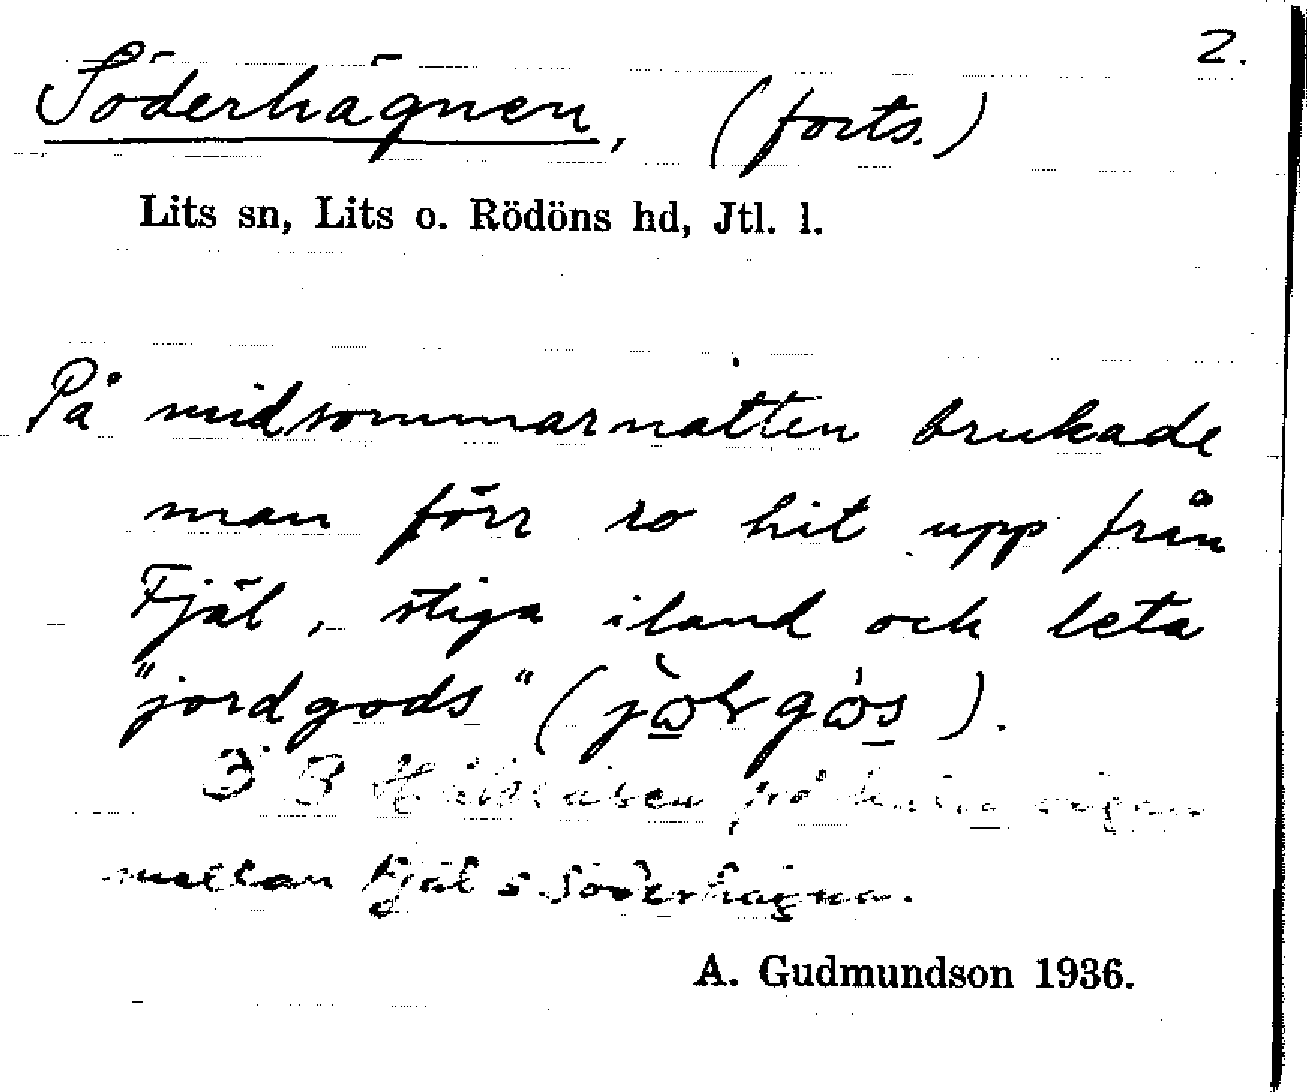 2.
Söderhägnen, (forts.)
Lits sn, Lits o. Rödöns hd, Jtl. l.
På midsommarnatten brukade
man förr ro hit upp från
Fjäl, stiga iland och leta
"jordgods" ( ).
på halva vägen
mellan Fjäl o Söderhägna.
A. Gudmundson 1936.